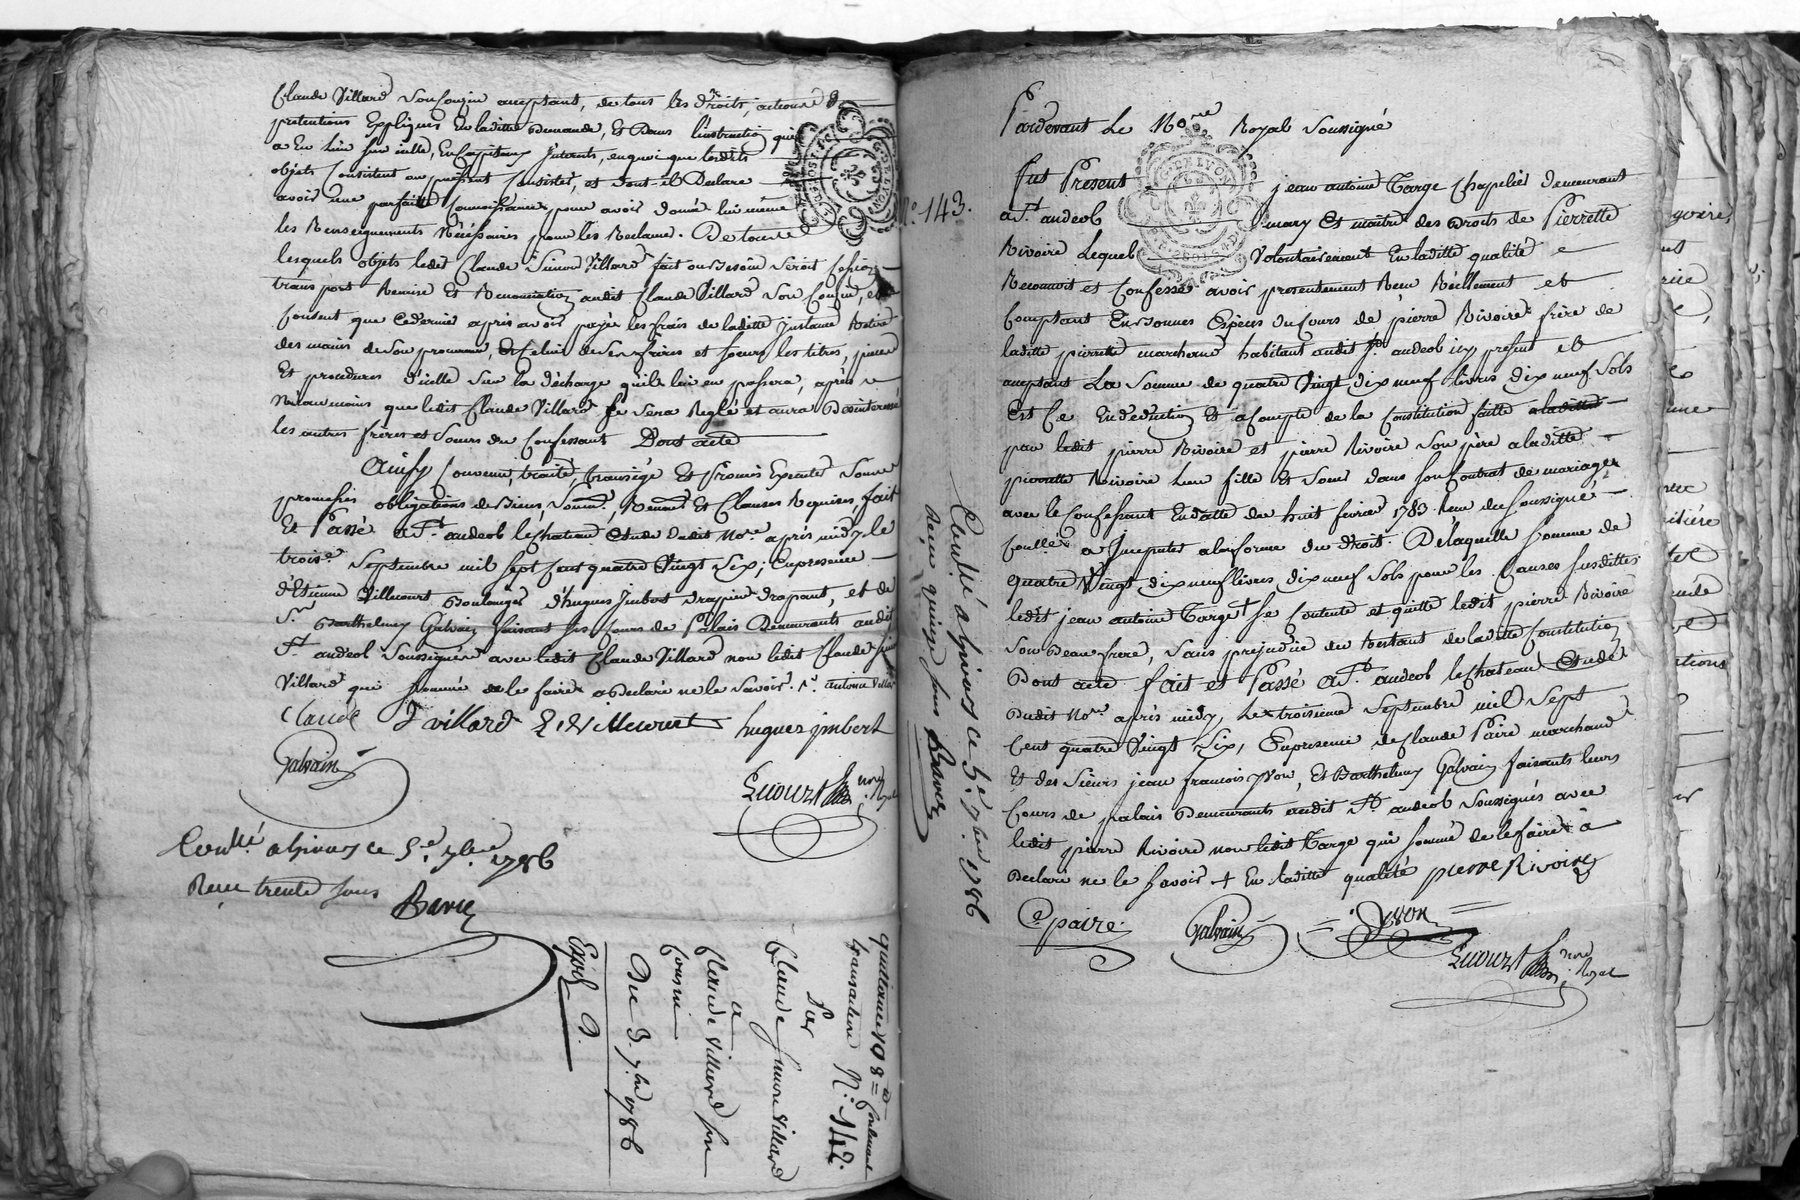 Claude Villard son Cousin acceptant, de tous les droits, actions &
pretentions Expliqués En laditte Demande, et Dans l'instruction qui
a En lieu sur icelle, En Capitaux Interets, en quoi que lesdits
objets Consistent ou puissent Consister, et dont il Declare
avoir une parfaitte Connoissance pour avoir donné lui même
les Renseignements Nécéssaires pour les Reclamer. De tous
lesquels objets ledit Claude Simon Villard fait ou Besoin Seroit Cession
transport Remise Et Renonciation audit Claude Villard Son Cousin, et
Consent que Ce dernier après avoir payé les frais de laditte Instance Retire
des mains de Son procureur, et Celui de Ses frères et soeurs les titres, pieces
Et procedures d'icelle Sur la décharge qu'il lui en passera, après
Néanmoins que ledit Claude Villard Se Sera Reglé et aura Desinteressé
les autres frères et Soeurs du Confessant Dont acte
Ainsy Convenu, traité, transigé Et Promis Executer Sous
promesses obligations de Biens, Soum.on, Renon.on Et Clauses Requises, fait
Et Passé a St. andeol le chateau Etude dudit No.re après midy le
trois.e Septembre mil Sept Cent quatre Vingt Six; En presence
d'Etienne Villecourt Boulanger d'hugues Imbert drapier drapant, et de
Sr. Barthelemy Galvain faisant Ses Cours de Palais Demeurants audit
St. andeol Soussignés avec ledit Claude Villard non ledit Claude Simon
Villard qui Sommé de le faire a Declaré ne le Savoir.
Claude Villard E Villecourt hugues jmbert
Galvain
Lucourt nore Royal
Con.llé a Givors ce 5.e 7bre 1786
Reçu trente sous Barou
quatorze 108
transaction N.o 142.
Par
Claude Simon Villard
a
Claude Villard son
Cousin
Du 3. 7bre 1786
Expd.
N.o 143.
Con.llé a Givors ce 5.e 7bre 1786
Reçu quinze sous Barou
Pardevant Le No.re Royal Soussigné
fut Present jean antoine Targe Chapelier demeurant
a St. andeol mary Et maitre des droits de Pierrette
Rivoire Lequel Volontairement En laditte qualité
Reconnoit et Confesse avoir presentement Reçu Réellement et
Comptant En bonnes Especes du Cours de pierre Rivoire frère de
laditte pierrette marchand habitant audit St. andeol icy present et
acceptant La Somme de quatre Vingt dix neuf livres dix neuf Sols
Est Ce En déduction Et a Compte de la Constitution faitte a laditte
par ledit pierre Rivoire et pierre Rivoire Son père a laditte
pierrette Rivoire leur fille Et Soeur dans Son Contrat de mariage
avec le Confessant En datte du huit fevrier 1783. Reçu du Soussigné
Con.llé a Imputer a la forme du droit. De laquelle Somme de
quatre Vingt dix neuf livres dix neuf Sols pour les Causes Susdittes
ledit jean antoine Targe Se Contente et quitte ledit pierre Rivoire
Son Beau frere, Sans prejudice du Restant de laditte Constitution
Dont acte. fait et Passé a St. andeol le chateau Etude
dudit No.re après midy, Le troisieme Septembre mil Sept
Cent quatre Vingt Six, En presence de Claude Paire marchand
Et des Sieurs jean francois yvon, Et Barthelemy Galvain faisants leurs
Cours de palais Demeurants audit St andeol Soussignés avec
ledit pierre Rivoire non ledit Targe qui Sommé de le faire a
Declaré ne le Savoir + En laditte qualité pierre Rivoire
C paire Galvain Yvon
Lucourt nore Royal